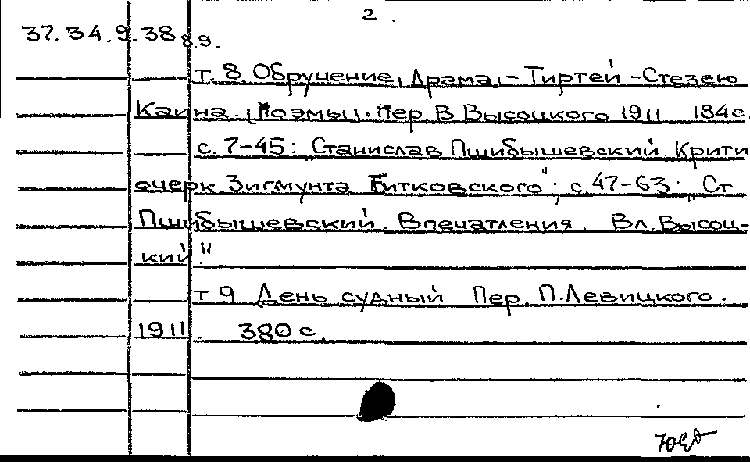 2.
37.34.9.38 8.9.
т. 8 Обручение, Драма, - Тиртей - Стезею
Каина, Поэмы. Пер В Высоцкого 1911 184с.
с. 7-45: Станислав Пшибышевский Крити
очерк Зигмунта Битковского"; с. 47-63: „Ст
Пшибышевский. Впечатления. Вл. Высоц-
кий."
т 9 День судный Пер. П. Левицкого.
1911. 380 с